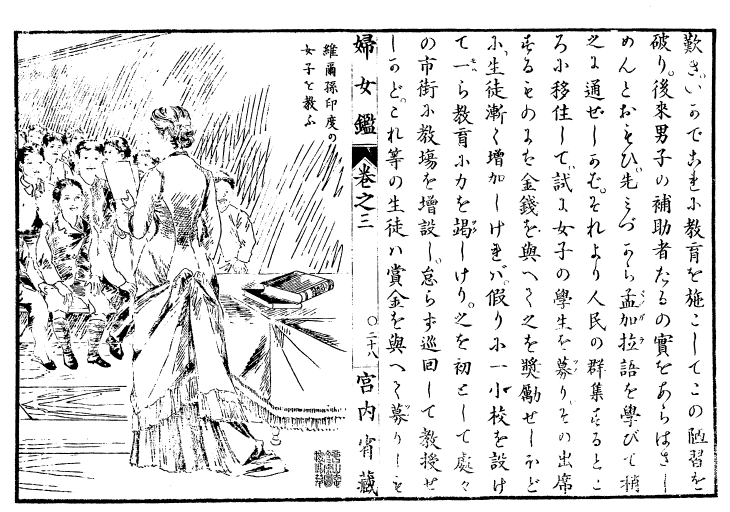 歎き、いかでこれに教育を施こしてこの陋習を
破り、後來男子の補助者たるの實をあらはさし
めんとおもひ、先みづから孟加拉語を學びて稍
之に通ぜしかば、それより人民の群集するとこ
ろに移住して、試に女子の學生を募り、その出席
するものには金錢を與へて之を奬勵せしほど
に、生徒漸く増加しければ、假りに一小校を設け
て一ら教育に力を竭しけり、之を初として處々
の市街に教塲を増設し、怠らず巡回して教授せ
しかど、これ等の生徒ハ賞金を與へて募りしも
婦女鑑 卷之三 ○二十八 宮内省藏
維爾孫印度の
女子を教ふ